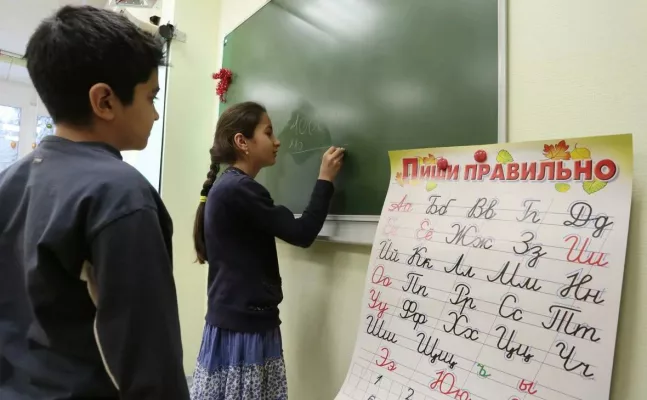 ПИШИ ПРАВИЛЬНО
Аа Бб Вв Гг Дд
Ее Ёё Жж Зз Ии
Йй Кк Лл Мм Нн
Оо Пп Рр Сс Тт
Уу Фф Хх Цц Чч
Шш Щщ ъ ы
Ээ Юю
1 2